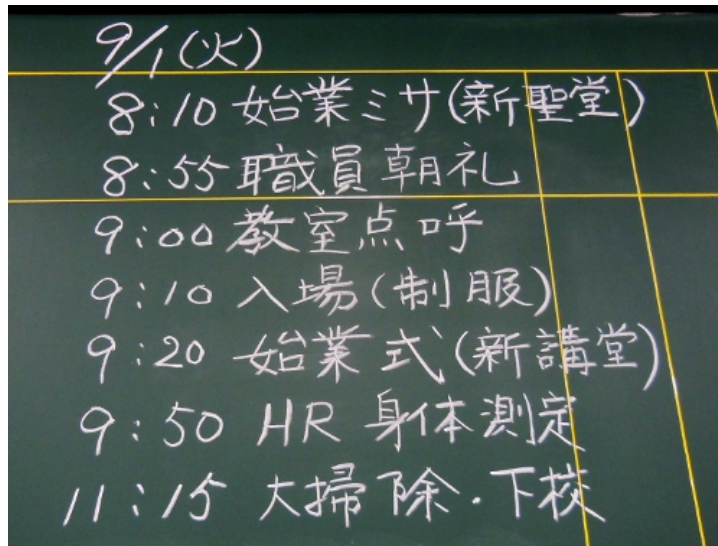 9/1(火)
8:10 始業ミサ(新聖堂)
8:55 職員朝礼
9:00 教室点呼
9:10 入場(制服)
9:20 始業式(新講堂)
9:50 HR 身体測定
11:15 大掃除・下校